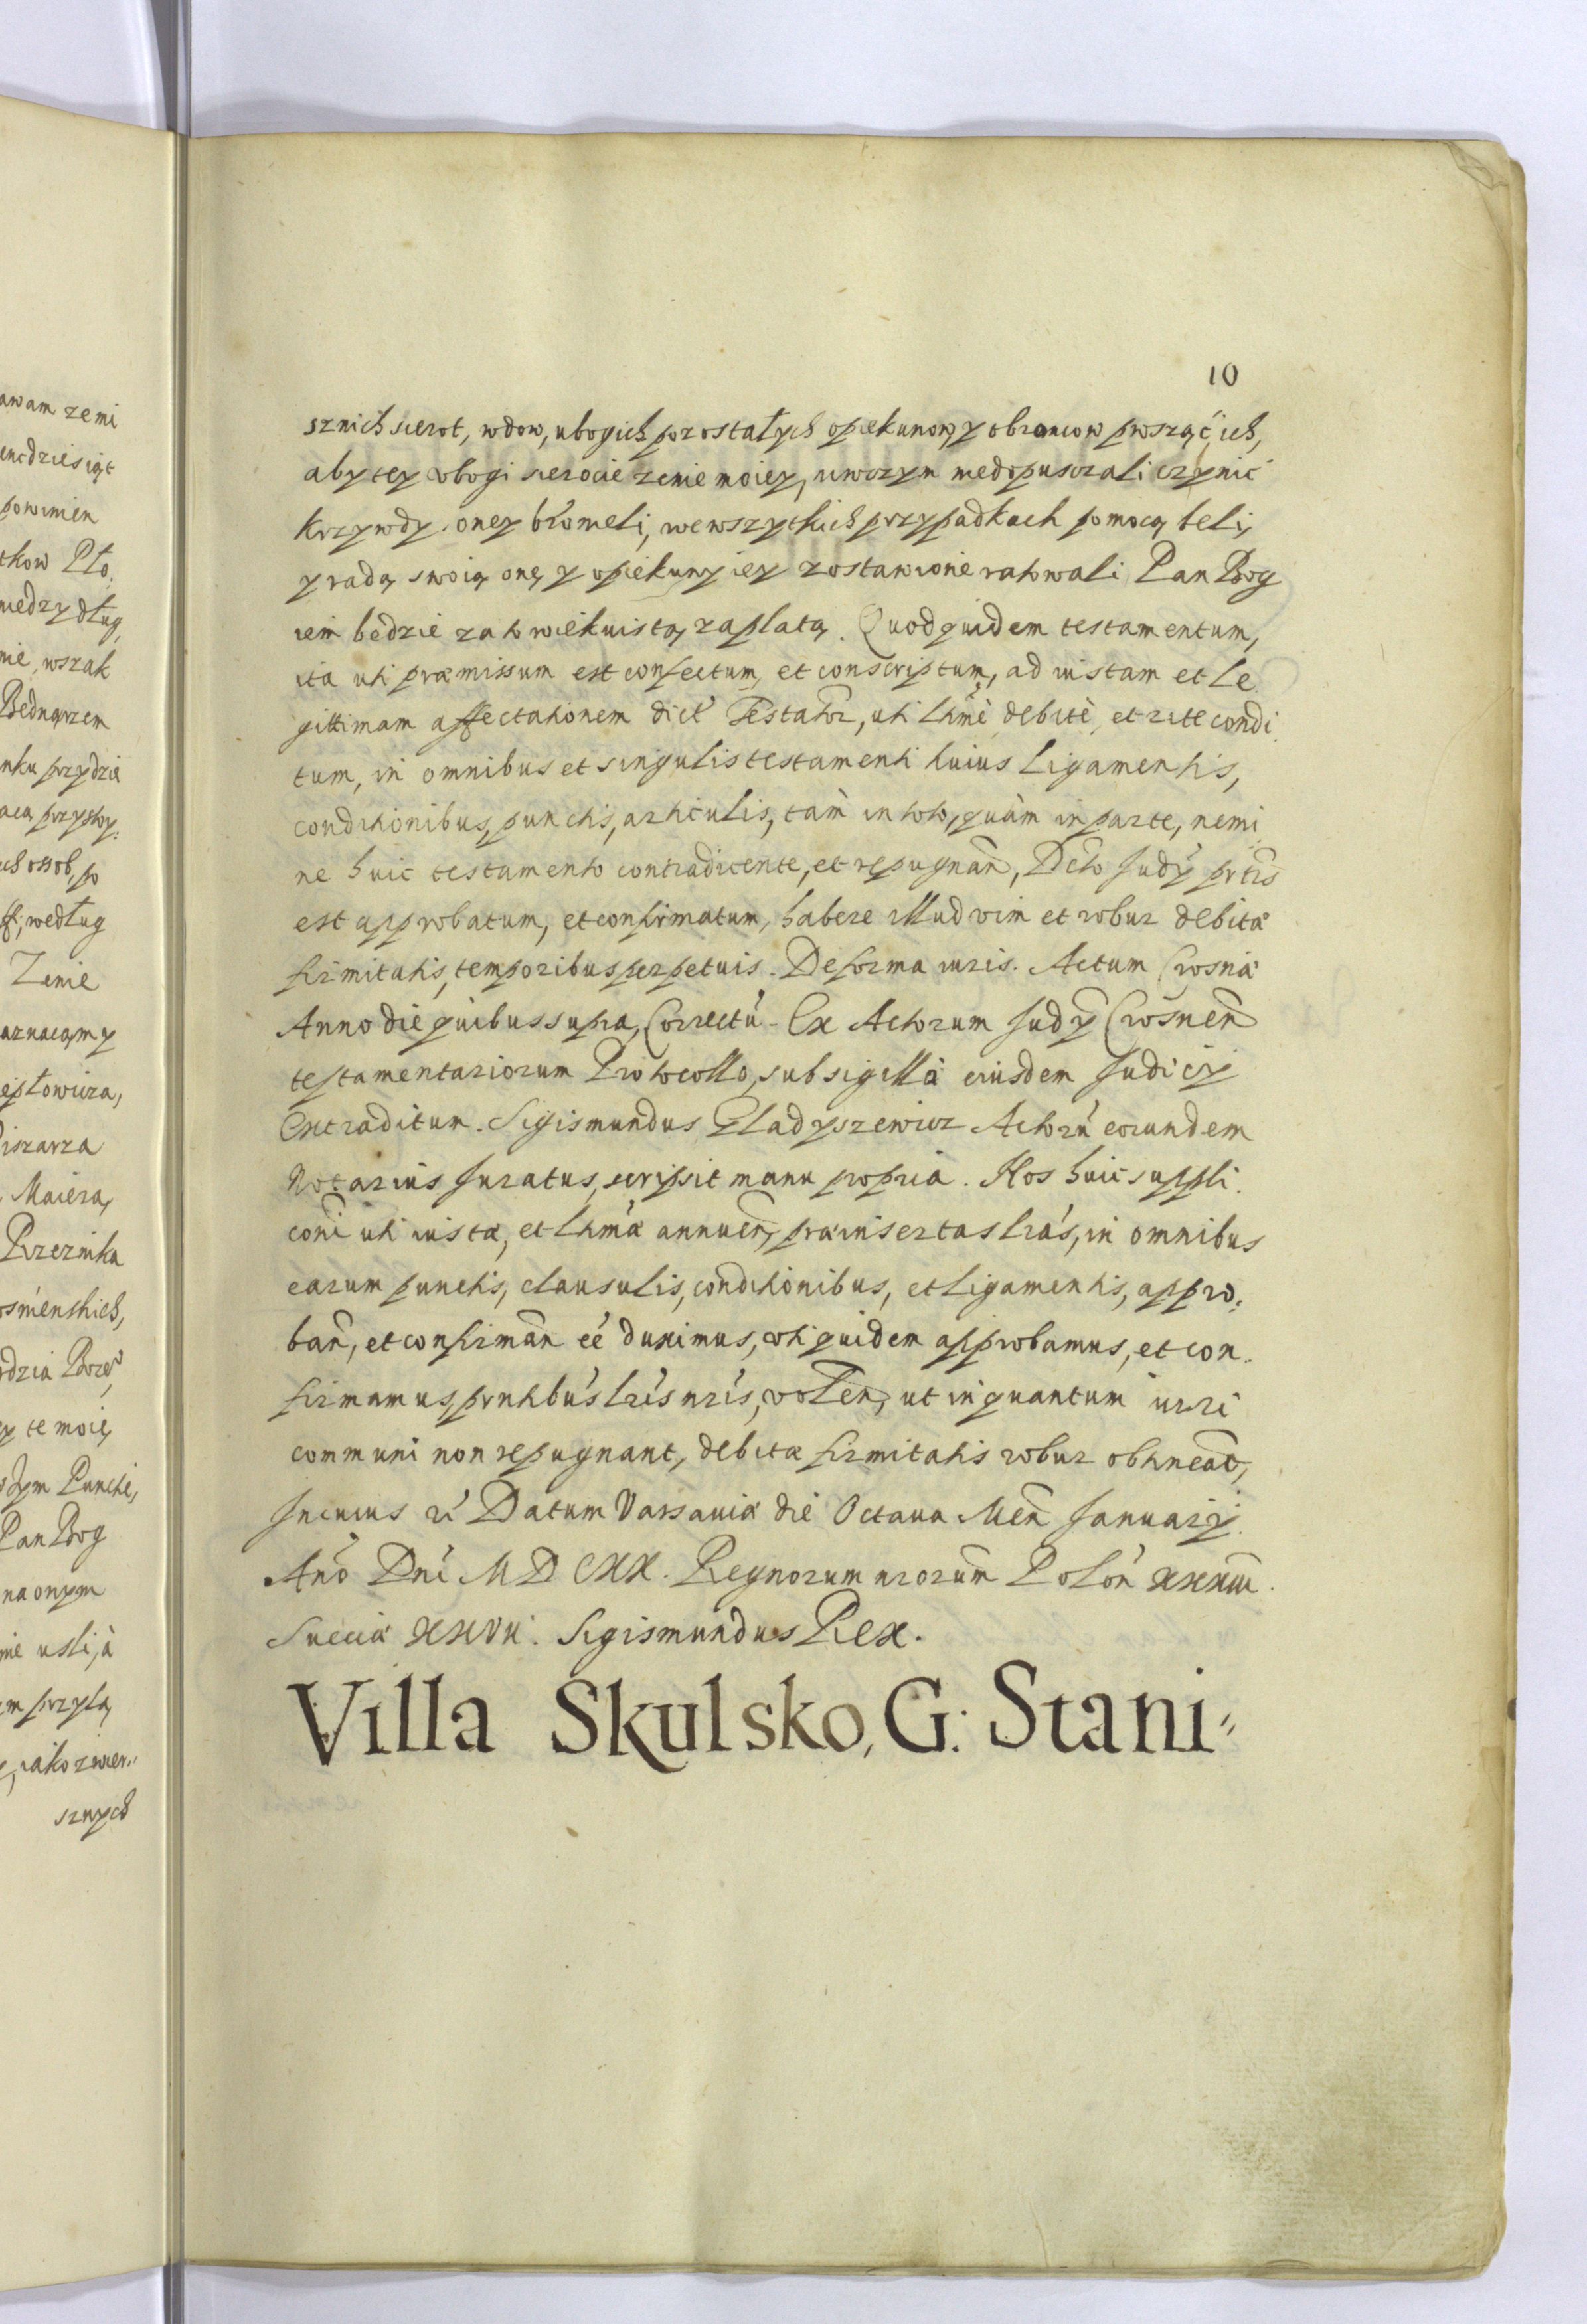 awam ze mi
powinien
tkow Pło
miedzy dług
nie, wszak
Bednarzem
nku przydzie
ff; według
Zenie
iszarza
Maiera,
Przeznika
ey te moię
Pan Bog
na onym
nie usli, à
sznych
10
sznich sierot, wdow, ubogich pozostałych opiekunow, y obrancow prosząc ich,
aby tey vbogi sierocie zenie moiey, uwczym niedopusczali czynic
krzywdy. oney bronieli, wewszytkich przypadkach pomocą beli,
y radą swoią onę y opiekuny iey zostawione ratowali Pan Bog
iem bedzie za to wiekuistą zapłatą. Quod quidem testamentum,
ita uti præmissum est confectum, et conscriptum, ad iustam et le
gittimam affectationem dict Testator, uti lttmè debitè, et rite condi
tum, in omnibus et singulis testamenti huius ligamentis,
conditionibus, punctis, articulis, tàm in toto, quàm in parte, nemi
ne huic testamento contradicente, et repugnan, Dcto Judÿ prtis
est approbatum, et confirmatum, habere illud vim et robur debitæ
firmitatis, temporibus perpetuis. De forma iuris. Actum Crosnæ
Anno die quibus supra, Correctu. Ex Actorum Judÿ Crosnen
testamentariorum Prothocollo, sub sigillo eiusdem Judicÿ
Extraditum. Sigismundus Gladyszewicz Actoru eorundem
Notarius Juratus, scripsit manu propria. Nos huic suppli
coni uti iustæ, et lttmæ annuen, præinsertas lras, in omnibus
earum punctis, clausulis, conditionibus, et ligamentis, appro:
ban, et confirman ee duximus, vti quidem approbamus, et con
firmamus, prntibus lris nris, volen, ut in quantum iuri
communi non repugnant, debitæ firmitatis robur obtineat,
In cuius rei Datum Varsaviæ die Octava Men Januarÿ
Ano Dni MDCXX. Regnorum nrorum Polon XXXIII.
Sueciæ XXVII. Sigismundus Rex.
Villa Skulsko, G: Stani=